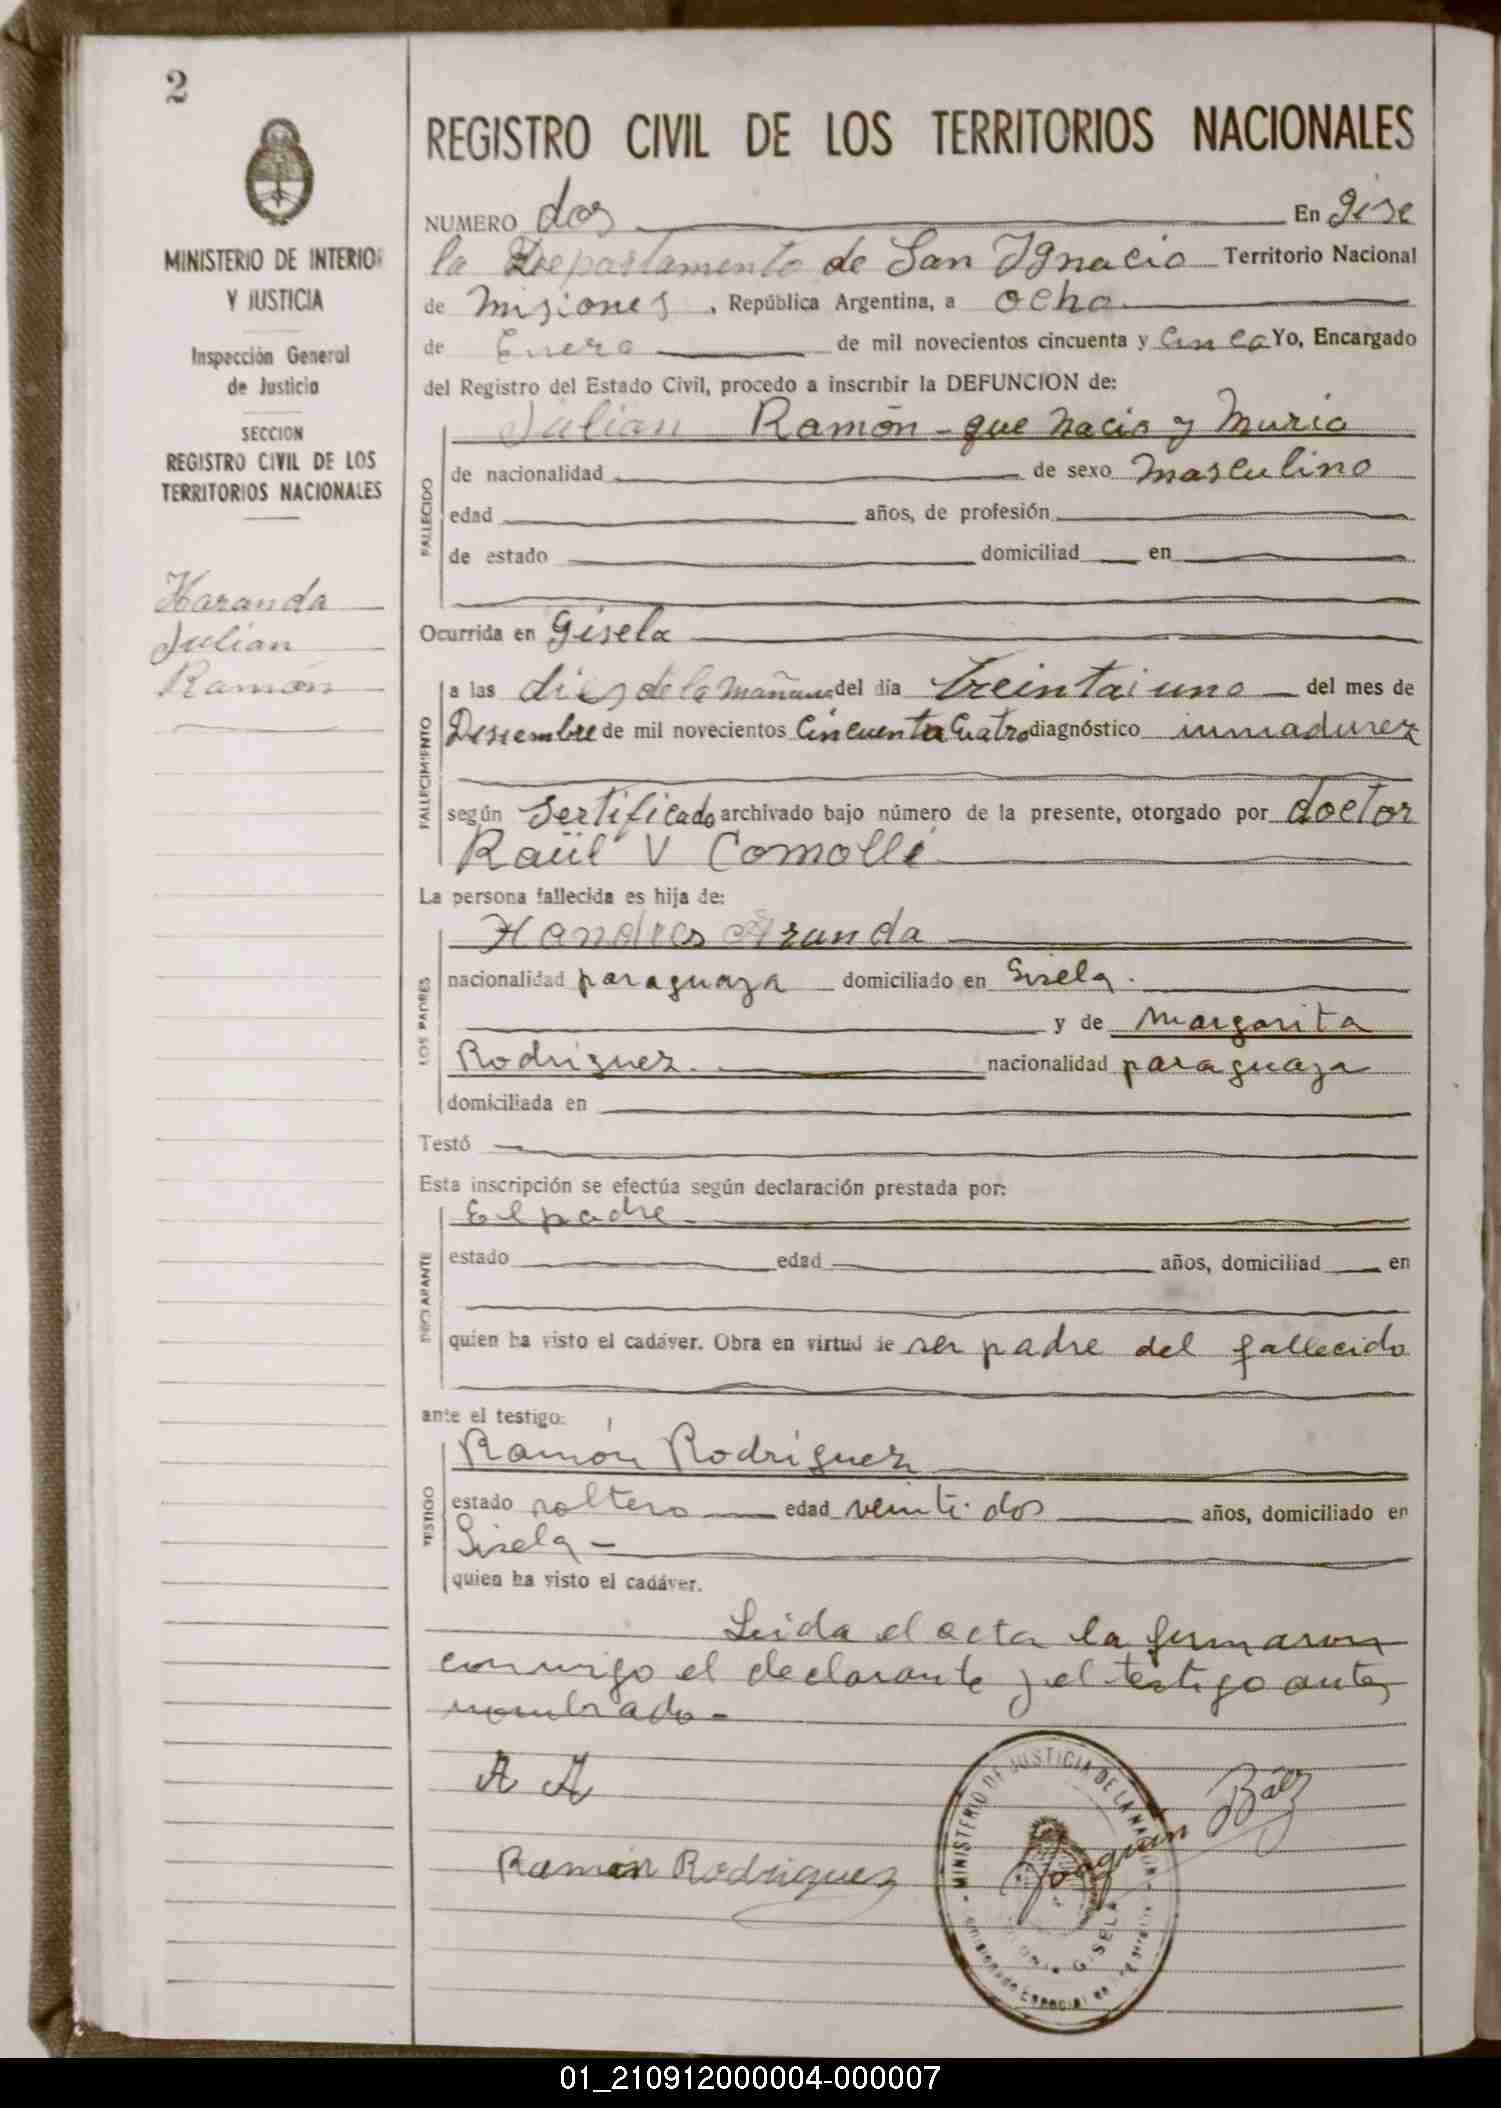 2
MINISTERIO DE INTERIOR
Y JUSTICIA
Inspección General
de Justicia
SECCION
REGISTRO CIVIL DE LOS
TERRITORIOS NACIONALES
Haranda
Julian
Ramón
REGISTRO CIVIL DE LOS TERRITORIOS NACIONALES
NUMERO dos En Gise
la Departamento de San Ignacio Territorio Nacional
de Misiones, República Argentina, a ocho
de Enero de mil novecientos cincuenta y cinco Yo, Encargado
del Registro del Estado Civil, procedo a inscribir la DEFUNCION de:
Julian Ramón - que nacio y Murio
FALLECIDO
de nacionalidad de sexo Masculino
edad años, de profesión
de estado domiciliad en
Ocurrida en Gisela
FALLECIMIENTO
a las dies de la mañana del día treintaiuno del mes de
Desiembre de mil novecientos Cincuenta Cuatro diagnóstico inmadurez
según Sertificado archivado bajo número de la presente, otorgado por doctor
Raül V Comolli
La persona fallecida es hija de:
LOS PADRES
Handres Aranda
nacionalidad paraguaya domiciliado en Gisela.
y de Margarita
Rodriguez. nacionalidad paraguaya
domiciliada en
Testó
Esta inscripción se efectúa según declaración prestada por:
DECLARANTE
El padre
estado edad años, domiciliad en
quien ha visto el cadáver. Obra en virtud de ser padre del fallecido
ante el testigo:
TESTIGO
Ramón Rodriguez
estado soltero edad veinti dos años, domiciliado en
Gisela -
quien ha visto el cadáver.
Leida el acta la firmaron
conmigo el declarante y el testigo antes
nombrado -
A A
Ramón Rodriguez
Joaquin Báez
MINISTERIO DE JUSTICIA DE LA NACION
GISELA
01_210912000004-000007